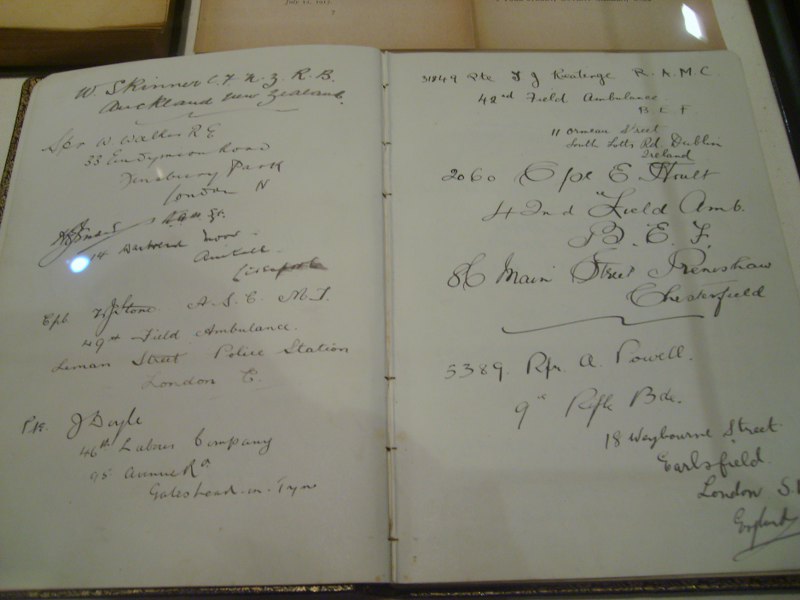 JULY 11, 1915
7
W. Skinner 1. 4 N. Z. R. B.
Auckland New Zealand.
Spr W. Walker R E
33 Endymion Road
Finsbury Park
London N
14
Liverpool
Cpl Stone A. S. C. M. T.
49th Field Ambulance.
Leman Street Police Station
London E.
Pte. J Doyle
46th Labour Company
95 Avenue Rd
Gateshead-on-Tyne
Pte J J Keatinge R. A. M. C.
42nd Field Ambulance
B. E. F.
11 Ormeau Street
South Lotts Rd Dublin
Ireland
2060 Cpl E Hoult
42nd Field Amb.
B. E. F.
86 Main Street Renishaw
Chesterfield
3389. Rfn A. Powell.
9th Rifle Bde.
18 Weybourne Street
Earlsfield.
London S.
England